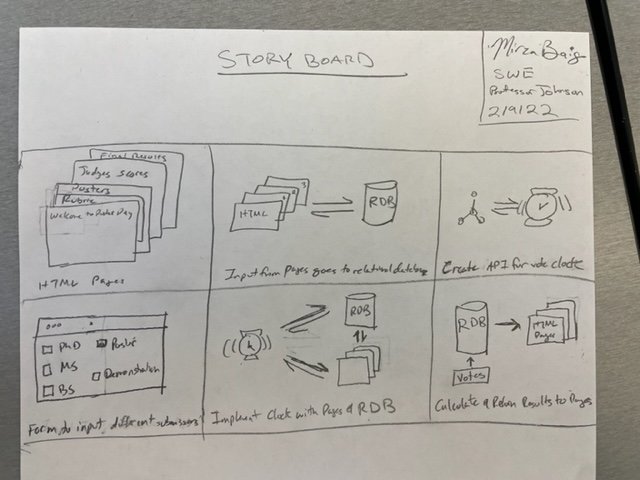 STORY BOARD
Mirza Baig
SWE
Professor Johnson
2/9/22
Final Results
Judges scores
Posters
Rubric
Welcome to Poster Day
HTML Pages
HTML
3
RDB
Input from Pages goes to relational database
Create API for vote clock
PhD
MS
BS
Poster
Demonstration
Form to input different submissions
RDB
Implment Clock with Pages & RDB
RDB
HTML
Pages
Votes
Calculate & Return Results to Pages